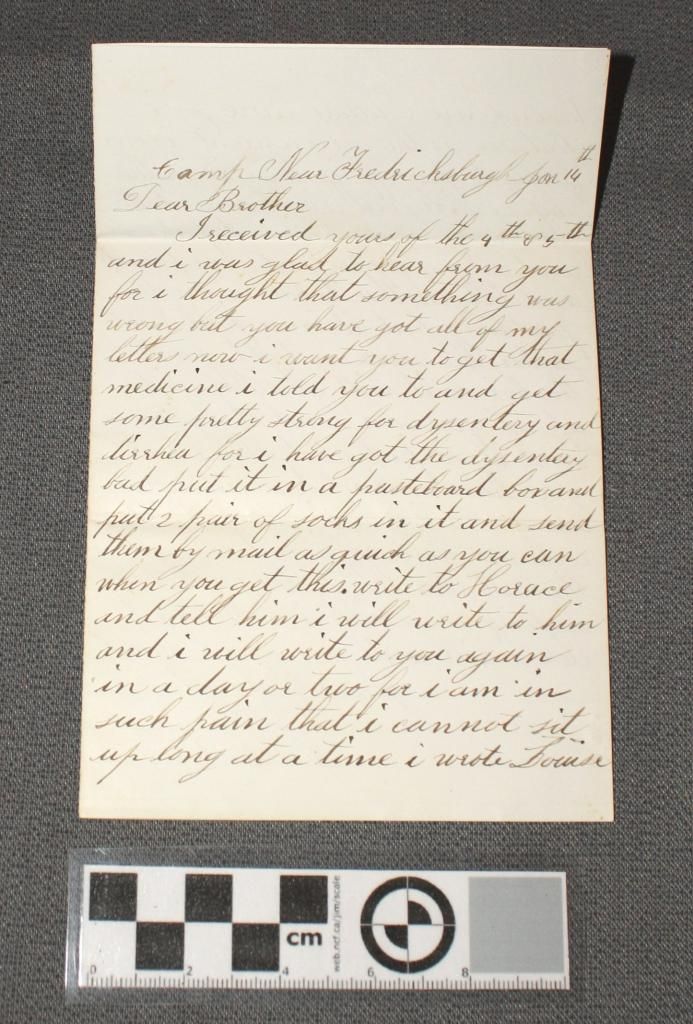 Camp Near Fredricksburgh Jan 14th
Dear Brother
I received yours of the 4th & 5th
and i was glad to hear from you
for i thought that something was
wrong but you have got all of my
letters now i want you to get that
medicine i told you to and get
some pretty strong for dysentery and
dirrhea for i have got the dysentery
bad put it in a pasteboard box and
put 2 pair of socks in it and send
them by mail as quick as you can
when you get this. write to Horace
and tell him i will write to him
and i will write to you again
in a day or two for i am in
such pain that i cannot sit
up long at a time i wrote Louise
cm
web.ncf.ca/jim/scale
0 2 4 6 8